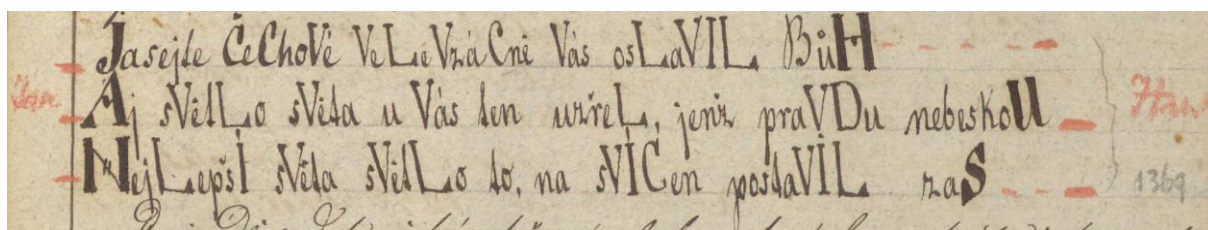 Jasejte ČeChoVé VeLeVzáCně Vás osLaVIL BůH
Jan Aj sVětLo sVěta u Vás ten uzřeL, jenž praVDu nebeskoU Hus
NejLepšI sVěta sVětLo to, na sVÍCen postaVIL zaS 1369